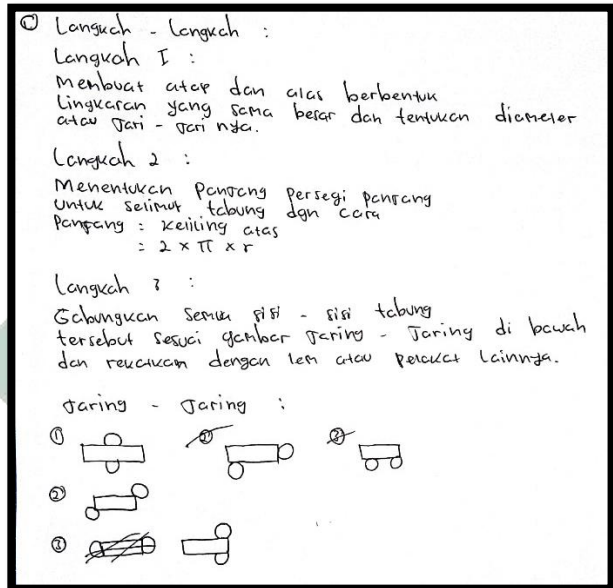 ① Langkah - Langkah :
Langkah I :
Membuat atap dan alas berbentuk
Lingkaran yang sama besar dan tentukan diameter
atau Jari - Jari nya.
Langkah 2 :
Menentukan Panjang Persegi panjang
untuk selimut tabung dgn cara
Panjang : keliling atas
= 2 × π × r
Langkah 3 :
Gabungkan semua sisi - sisi tabung
tersebut sesuai gambar Jaring - Jaring di bawah
dan rekatkan dengan lem atau perekat Lainnya.
Jaring - Jaring :
① ② ③
②
③